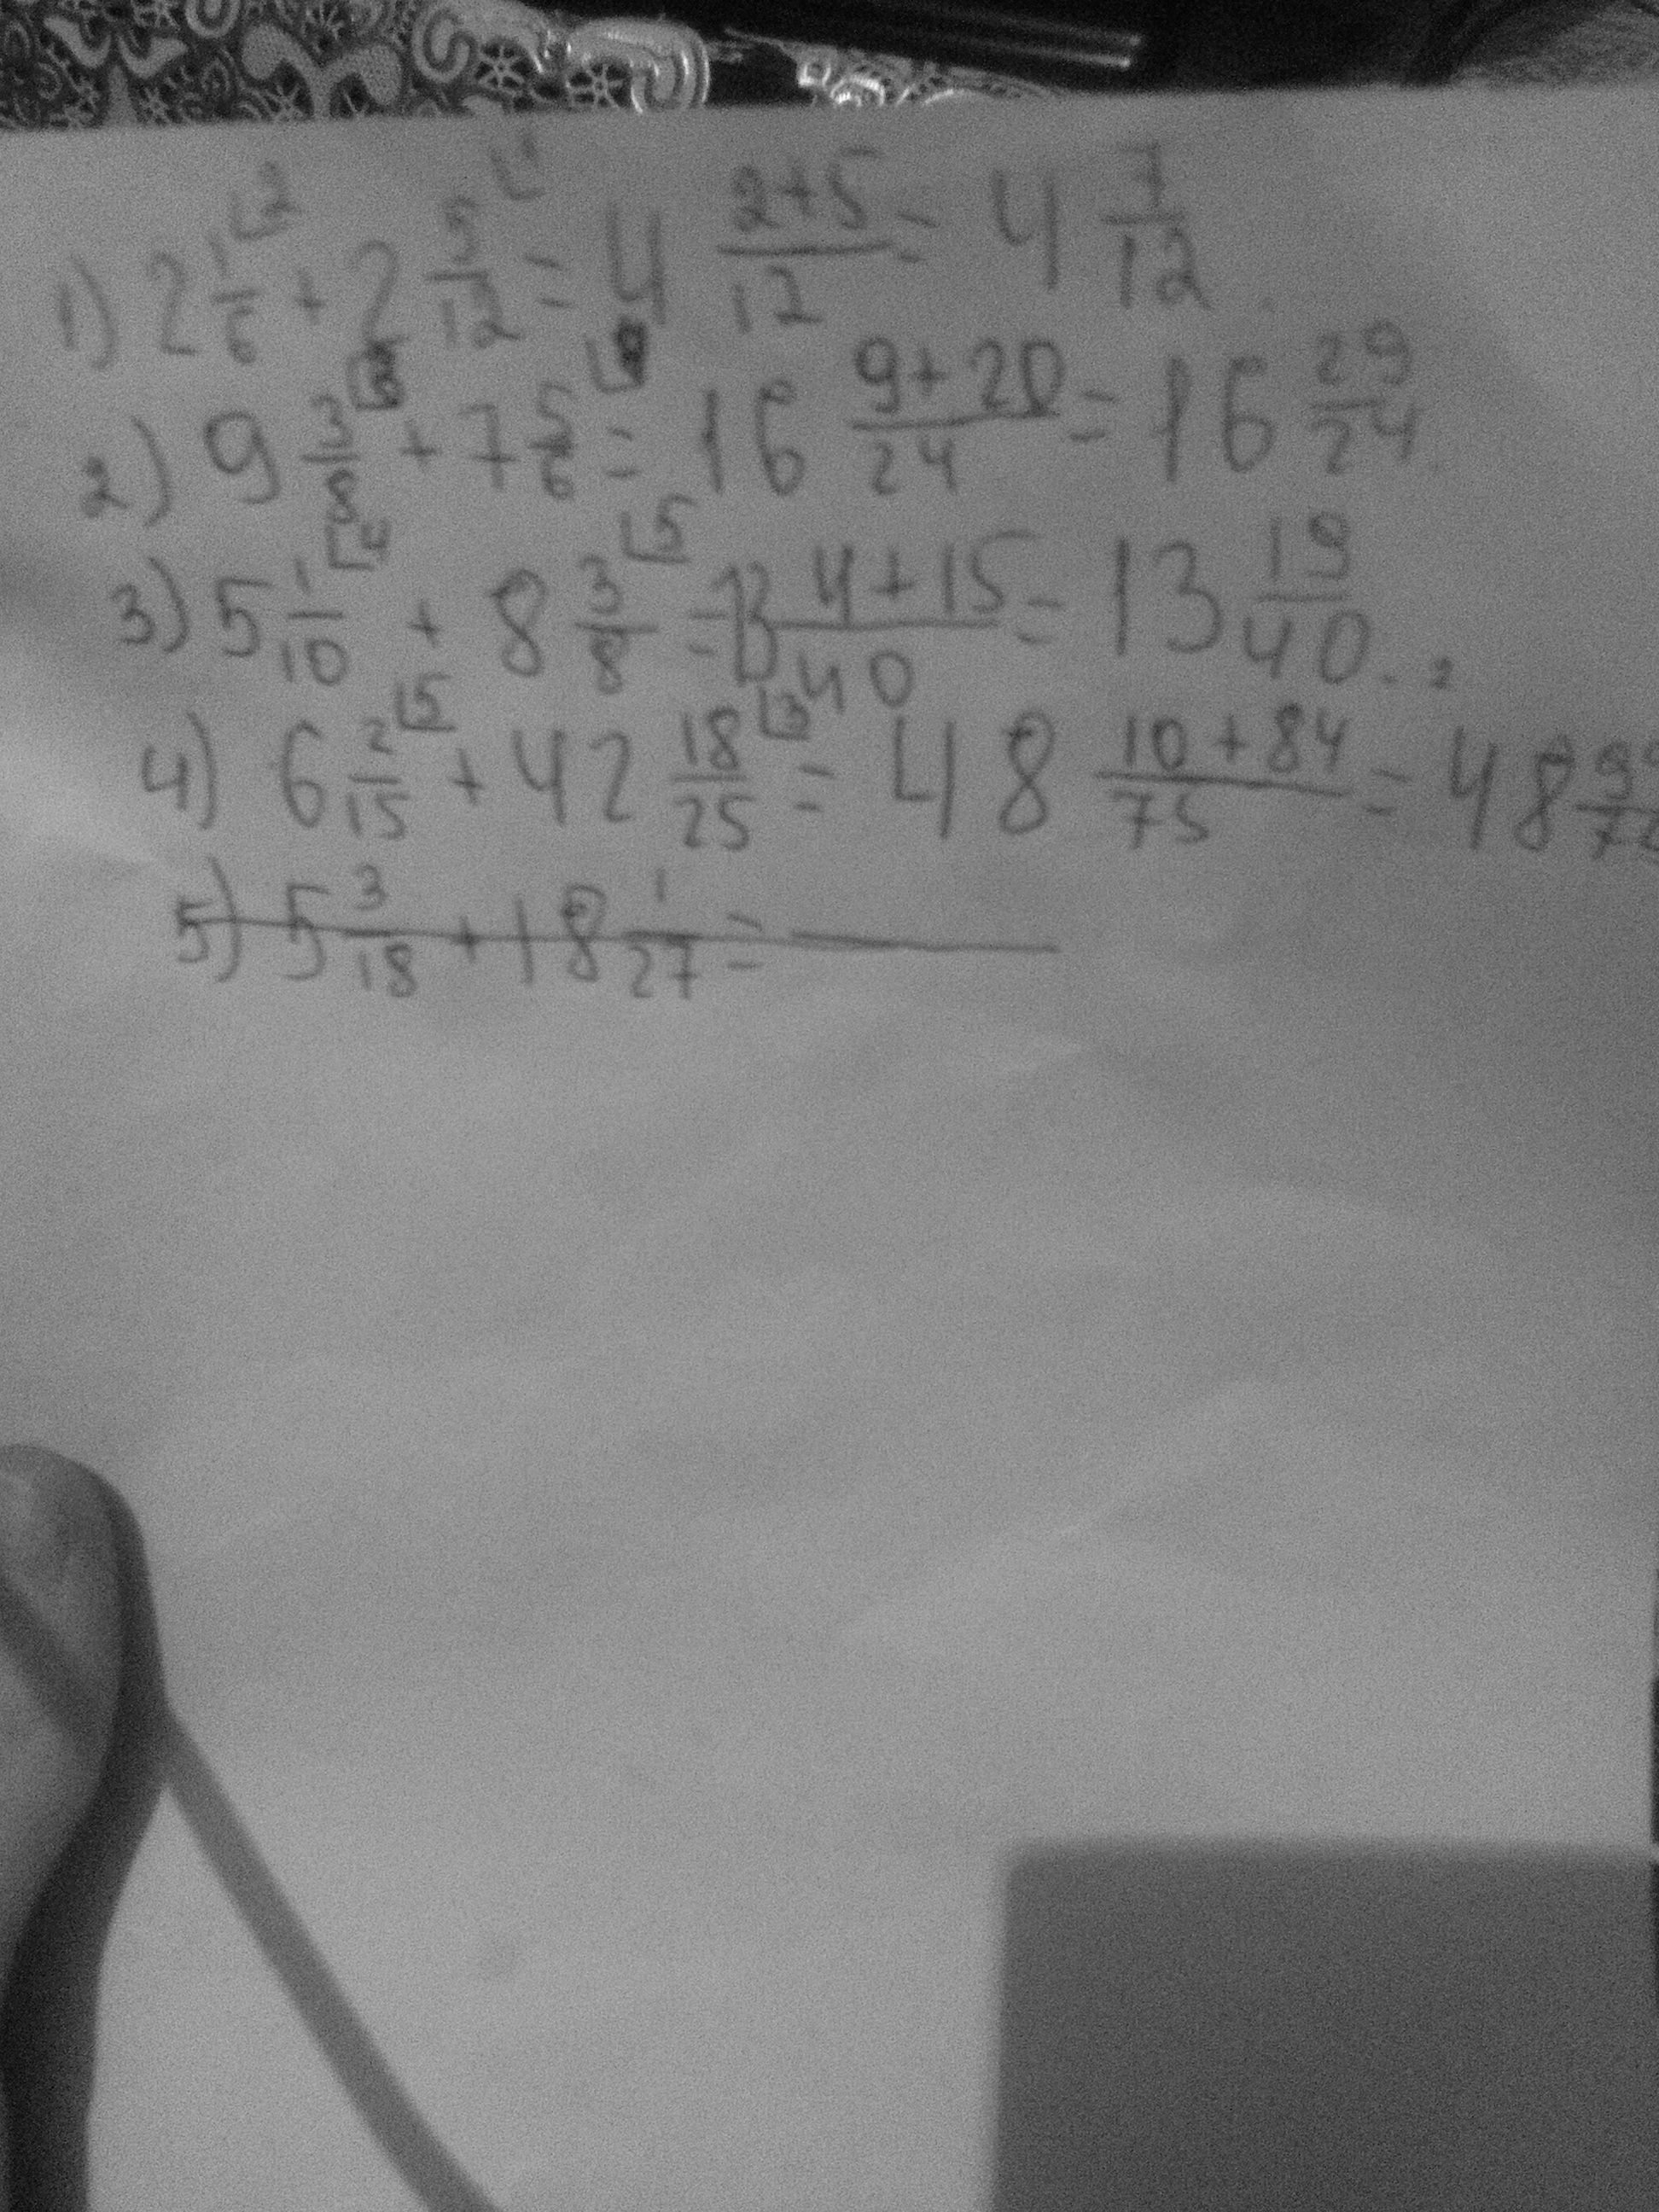 1) 2 1/6 ⌊2 + 2 5/12 ⌊1 = 4 2+5/12 = 4 7/12.
2) 9 3/8 ⌊3 + 7 5/6 ⌊4 = 16 9+20/24 = 16 29/24.
3) 5 1/10 ⌊4 + 8 3/8 ⌊5 = 13 4+15/40 = 13 19/40.
4) 6 2/15 ⌊5 + 42 18/25 ⌊3 = 48 10+84/75 = 48
5) 5 3/18 + 18 1/27 =